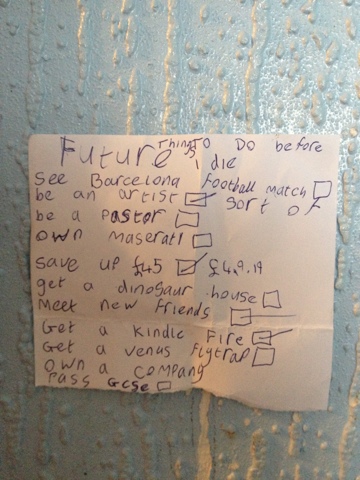 Future Things To Do before
i die
See Barcelona football match
be an artist Sort of
be a pastor
own maserati
save up £45 £49.19
get a dinosaur house
Meet new friends
Get a kindle Fire
Get a venus flytrap
own a company
Pass Gcse